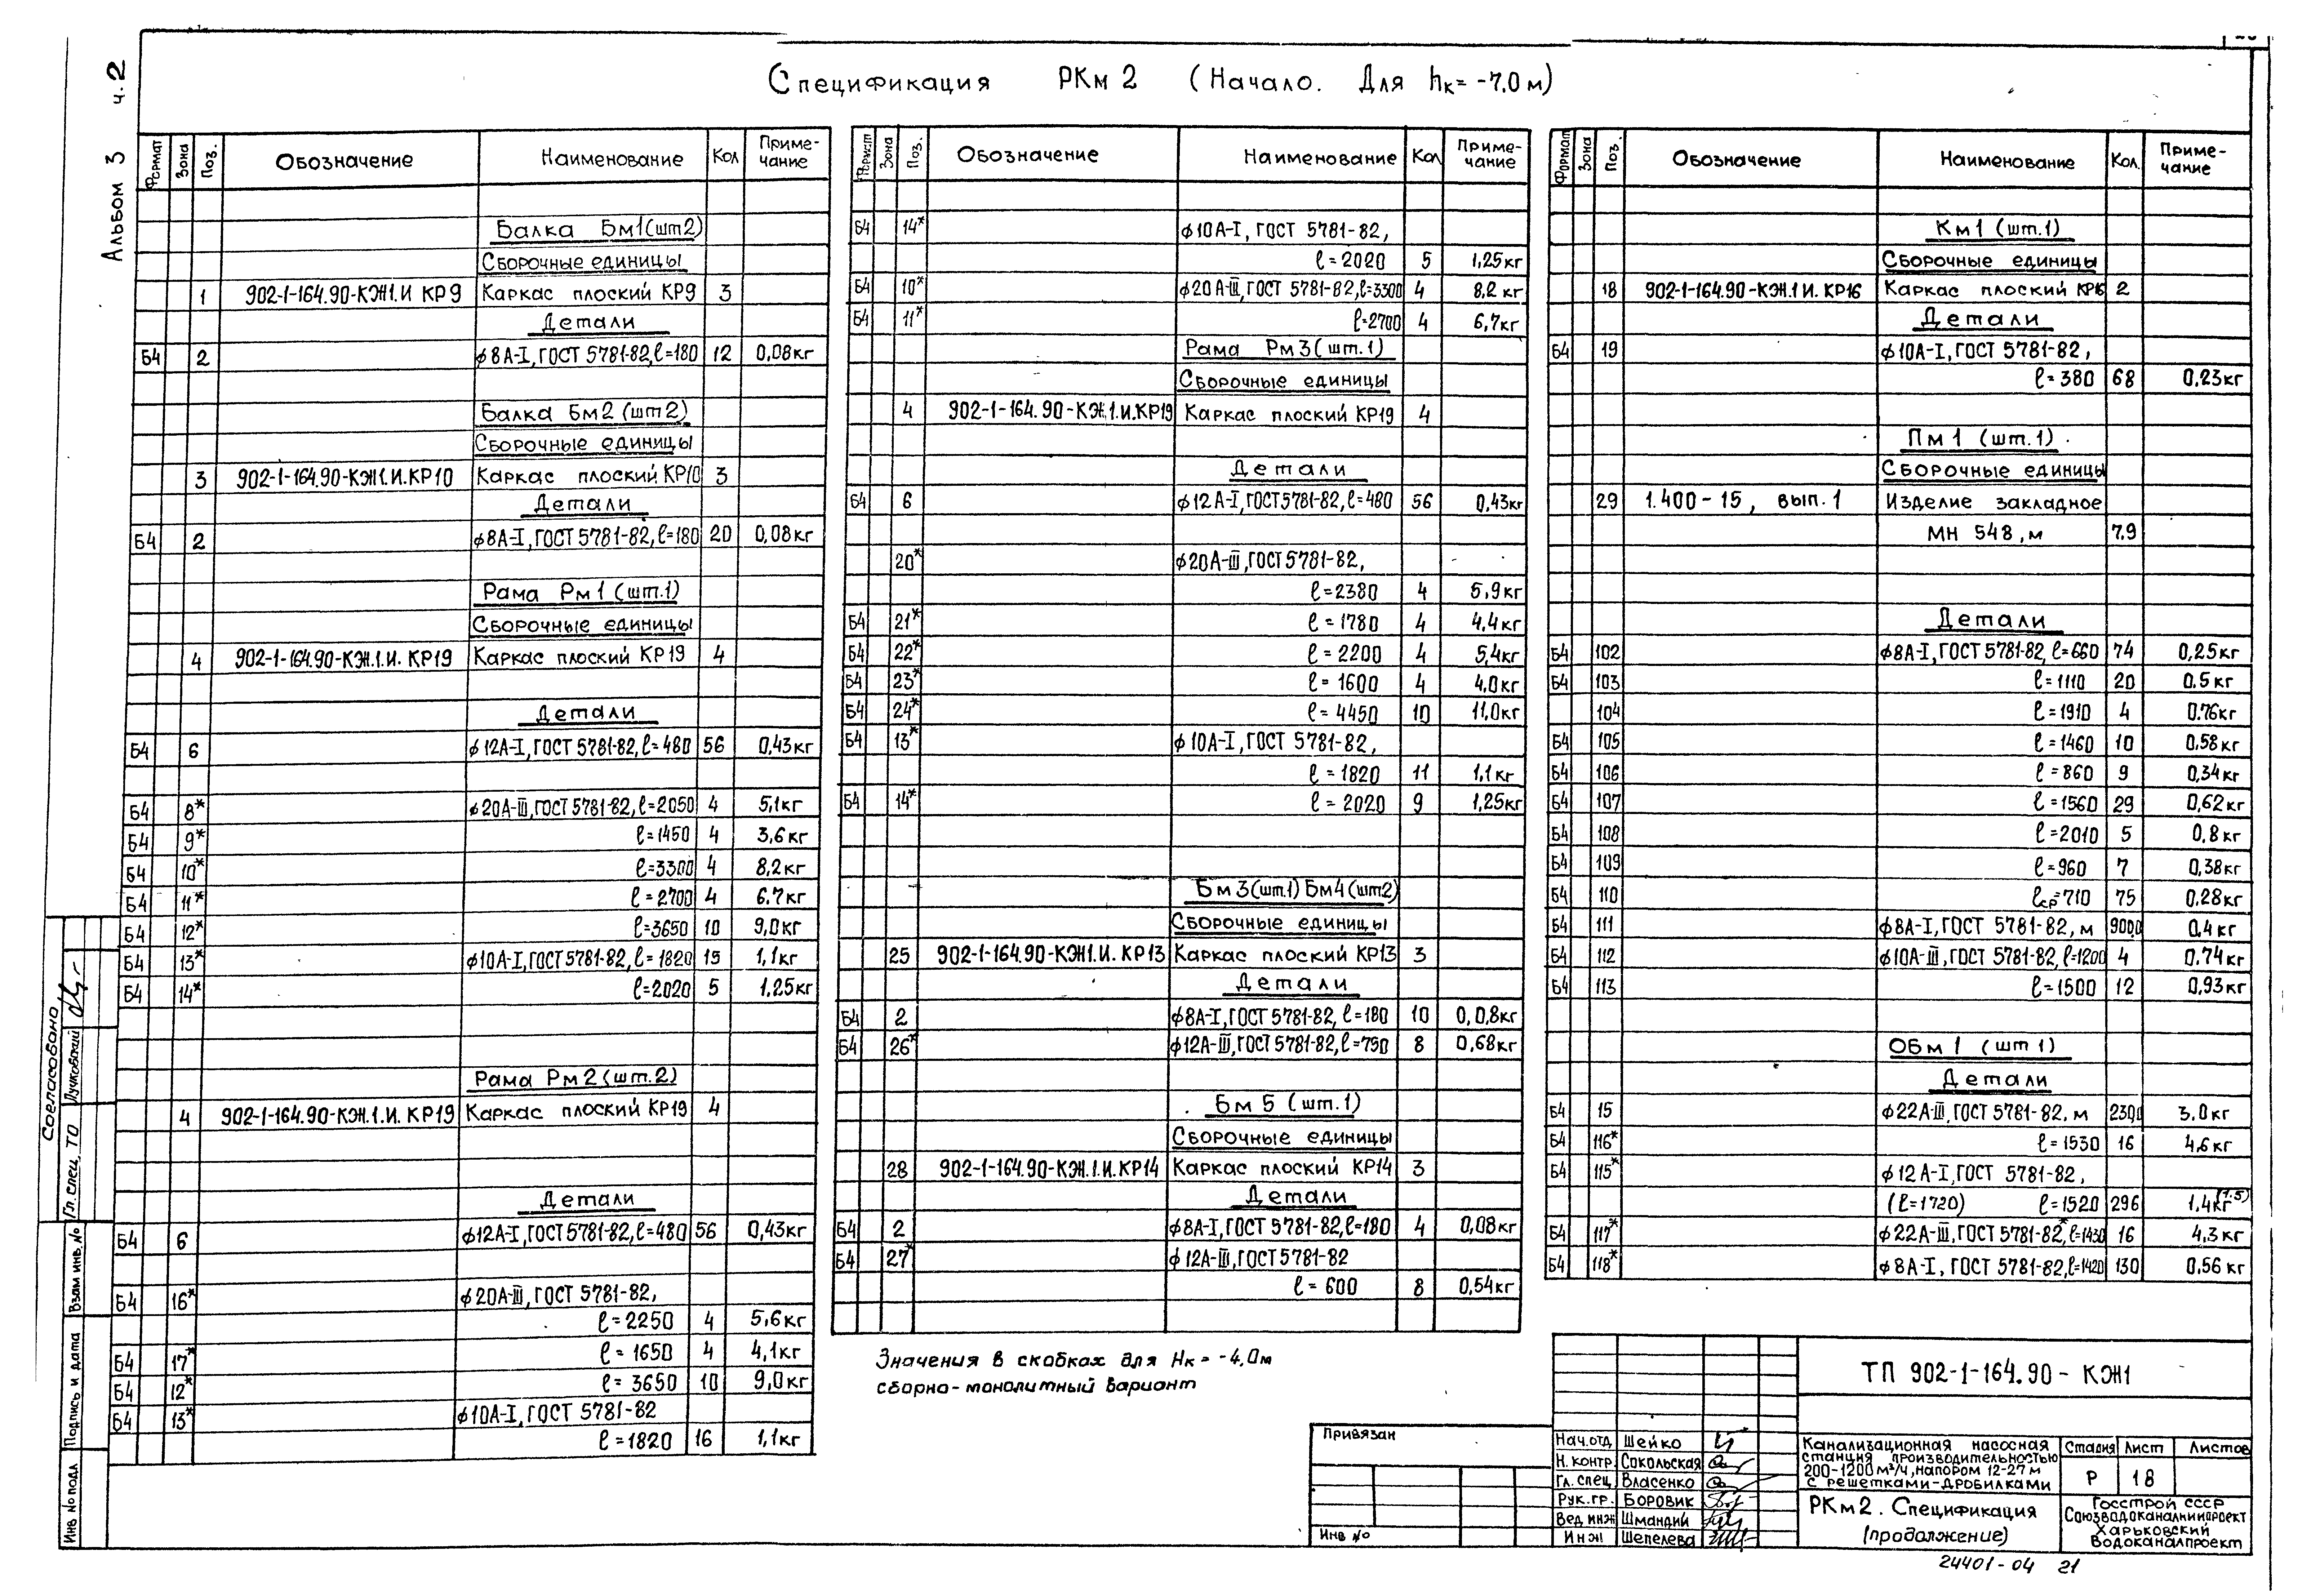 Спецификация РКм 2 (Начало. Для hк= -7.0 м)
Альбом 3 ч.2
Формат Зона Поз. Обозначение Наименование Кол Приме-чание
Балка Бм1 (шт2)
Сборочные единицы
1 902-1-164.90-КЖ1.И КР9 Каркас плоский КР9 3
Детали
Б4 2 ф8А-I, ГОСТ 5781-82, ℓ=180 12 0,08кг
Балка Бм2 (шт2)
Сборочные единицы
3 902-1-164.90-КЖ1.И.КР10 Каркас плоский КР10 3
Детали
Б4 2 ф8А-I, ГОСТ 5781-82, ℓ=180 20 0,08кг
Рама Рм1 (шт.1)
Сборочные единицы
4 902-1-164.90-КЖ.1.И. КР19 Каркас плоский КР19 4
Детали
Б4 6 ф12А-I, ГОСТ 5781-82, ℓ=480 56 0,43кг
Б4 8* ф20А-III, ГОСТ 5781-82, ℓ=2050 4 5,1кг
Б4 9* ℓ=1450 4 3,6кг
Б4 10* ℓ=3300 4 8,2кг
Б4 11* ℓ=2700 4 6.7кг
Б4 12* ℓ=3650 10 9,0кг
Б4 13* ф10А-I, ГОСТ 5781-82, ℓ=1820 15 1,1кг
Б4 14* ℓ=2020 5 1.25кг
Рама Рм2 (шт.2)
4 902-1-164.90-КЖ.1.И. КР19 Каркас плоский КР19 4
Детали
Б4 6 ф12А-I, ГОСТ 5781-82, ℓ=480 56 0,43кг
Б4 16* ф20А-III, ГОСТ 5781-82,
ℓ=2250 4 5,6кг
Б4 17* ℓ=1650 4 4,1кг
Б4 12* ℓ=3650 10 9,0кг
Б4 13* ф10А-I, ГОСТ 5781-82
ℓ=1820 16 1,1кг
Формат Зона Поз. Обозначение Наименование Кол Приме-чание
Б4 14* ф10А-I, ГОСТ 5781-82,
ℓ=2020 5 1,25кг
Б4 10* ф20А-III, ГОСТ 5781-82, ℓ=3300 4 8,2 кг
Б4 11* ℓ=2700 4 6,7кг
Рама Рм3 (шт.1)
Сборочные единицы
4 902-1-164.90-КЖ.1.И.КР19 Каркас плоский КР19 4
Детали
Б4 6 ф12А-I, ГОСТ 5781-82, ℓ=480 56 0,43кг
20* ф20А-III, ГОСТ 5781-82,
ℓ=2380 4 5,9кг
Б4 21* ℓ=1780 4 4,4кг
Б4 22* ℓ=2200 4 5,4кг
Б4 23* ℓ=1600 4 4,0кг
Б4 24* ℓ=4450 10 11,0кг
Б4 13* ф10А-I, ГОСТ 5781-82,
ℓ=1820 11 1,1кг
Б4 14* ℓ=2020 9 1,25кг
Бм3 (шт1) Бм4 (шт2)
Сборочные единицы
25 902-1-164.90-КЖ1.И. КР13 Каркас плоский КР13 3
Детали
Б4 2 ф8А-I, ГОСТ 5781-82, ℓ=180 10 0,08кг
Б4 26* ф12А-III, ГОСТ 5781-82, ℓ=750 8 0,68кг
Бм 5 (шт.1)
Сборочные единицы
28 902-1-164.90-КЖ.1.И.КР14 Каркас плоский КР14 3
Детали
Б4 2 ф8А-I, ГОСТ 5781-82, ℓ=180 4 0,08кг
Б4 27* ф12А-III, ГОСТ 5781-82
ℓ=600 8 0,54кг
Формат Зона Поз. Обозначение Наименование Кол. Приме-чание
Км1 (шт.1)
Сборочные единицы
18 902-1-164.90-КЖ.1 И. КР16 Каркас плоский КР16 2
Детали
Б4 19 ф10А-I, ГОСТ 5781-82,
ℓ=380 68 0,23кг
Пм 1 (шт.1)
Сборочные единицы
29 1.400-15, вып.1 Изделие закладное
МН 548, м 7.9
Детали
Б4 102 ф8А-I, ГОСТ 5781-82, ℓ=660 74 0,25кг
Б4 103 ℓ=1110 20 0.5кг
104 ℓ=1910 4 0.76кг
Б4 105 ℓ=1460 10 0.58кг
Б4 106 ℓ=860 9 0,34кг
Б4 107 ℓ=1560 29 0,62кг
Б4 108 ℓ=2010 5 0,8кг
Б4 109 ℓ=960 7 0,38кг
Б4 110 ℓср=710 75 0.28кг
Б4 111 ф8А-I, ГОСТ 5781-82, м 900,0 0,4кг
Б4 112 ф10А-III, ГОСТ 5781-82, ℓ=1200 4 0.74кг
Б4 113 ℓ=1500 12 0,93кг
ОБм 1 (шт 1)
Детали
Б4 15 ф22А-III, ГОСТ 5781-82, м 230,0 3.0кг
Б4 116* ℓ=1530 16 4,6кг
Б4 115* ф12А-I, ГОСТ 5781-82,
(ℓ=1720) ℓ=1520 296 1,4кг (1.5)
Б4 117* ф22А-III, ГОСТ 5781-82, ℓ=1430 16 4,3кг
Б4 118* ф8А-I, ГОСТ 5781-82, ℓ=1420 130 0,56кг
Значения в скобках для Нк = -4,0м
сборно-монолитный вариант
Согласовано
Гл. спец. ТО Лучковский
Взам инв. №
Подпись и дата
Инв № подл
Привязан
Инв №
Нач.отд Шейко
Н.контр. Сокольская
Гл. спец. Власенко
Рук.гр. Боровик
Вед инж Шмандий
Инж Шепелева
ТП 902-1-164.90 - КЖ1
Канализационная насосная
станция производительностью
200-1200 м³/ч, напором 12-27м
с решетками-дробилками
Стадия Лист Листов
Р 18
РКм2. Спецификация
(продолжение)
Госстрой СССР
Союзводоканалниипроект
Харьковский
Водоканалпроект
24401-04 21